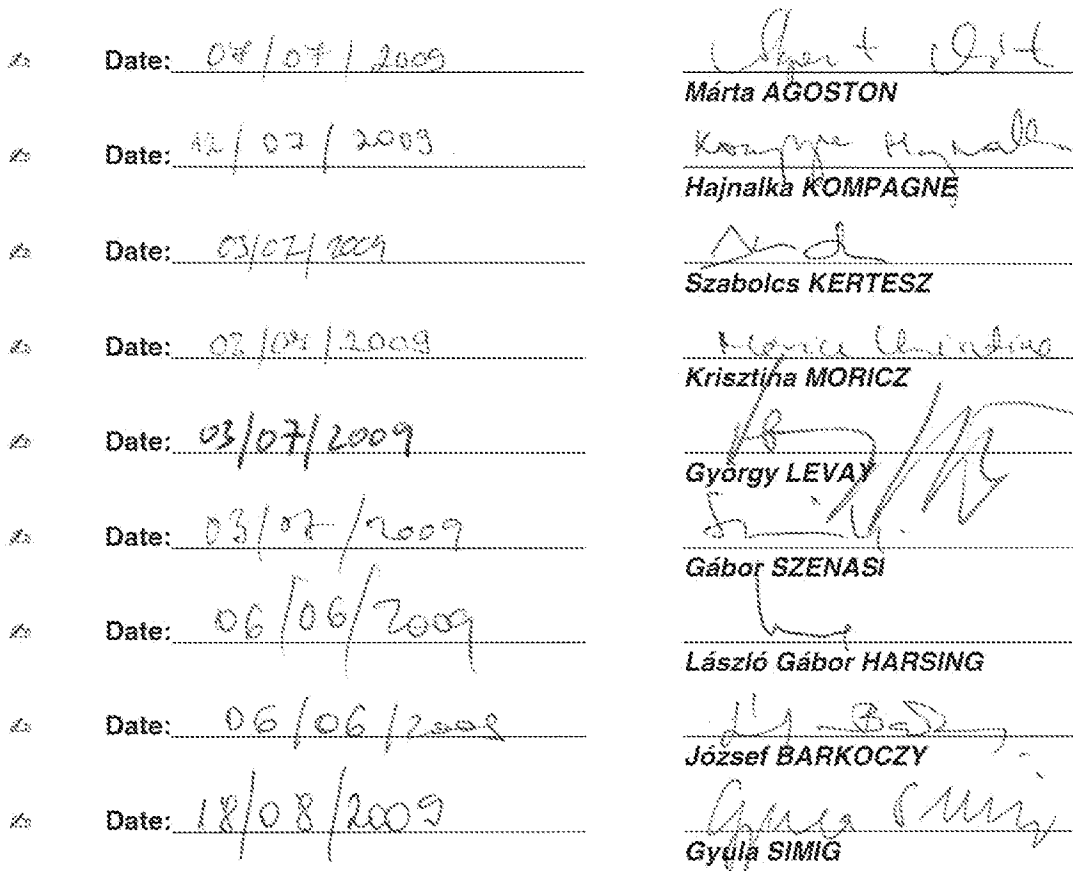 Date: 07/07/2009
Márta AGOSTON
Date: 12/07/2009
Hajnalka KOMPAGNE
Date: 03/07/2009
Szabolcs KERTESZ
Date: 02/07/2009
Krisztina MORICZ
Date: 03/07/2009
György LEVAY
Date: 03/07/2009
Gábor SZENASI
Date: 06/06/2009
László Gábor HARSING
Date: 06/06/2009
József BARKOCZY
Date: 18/08/2009
Gyula SIMIG